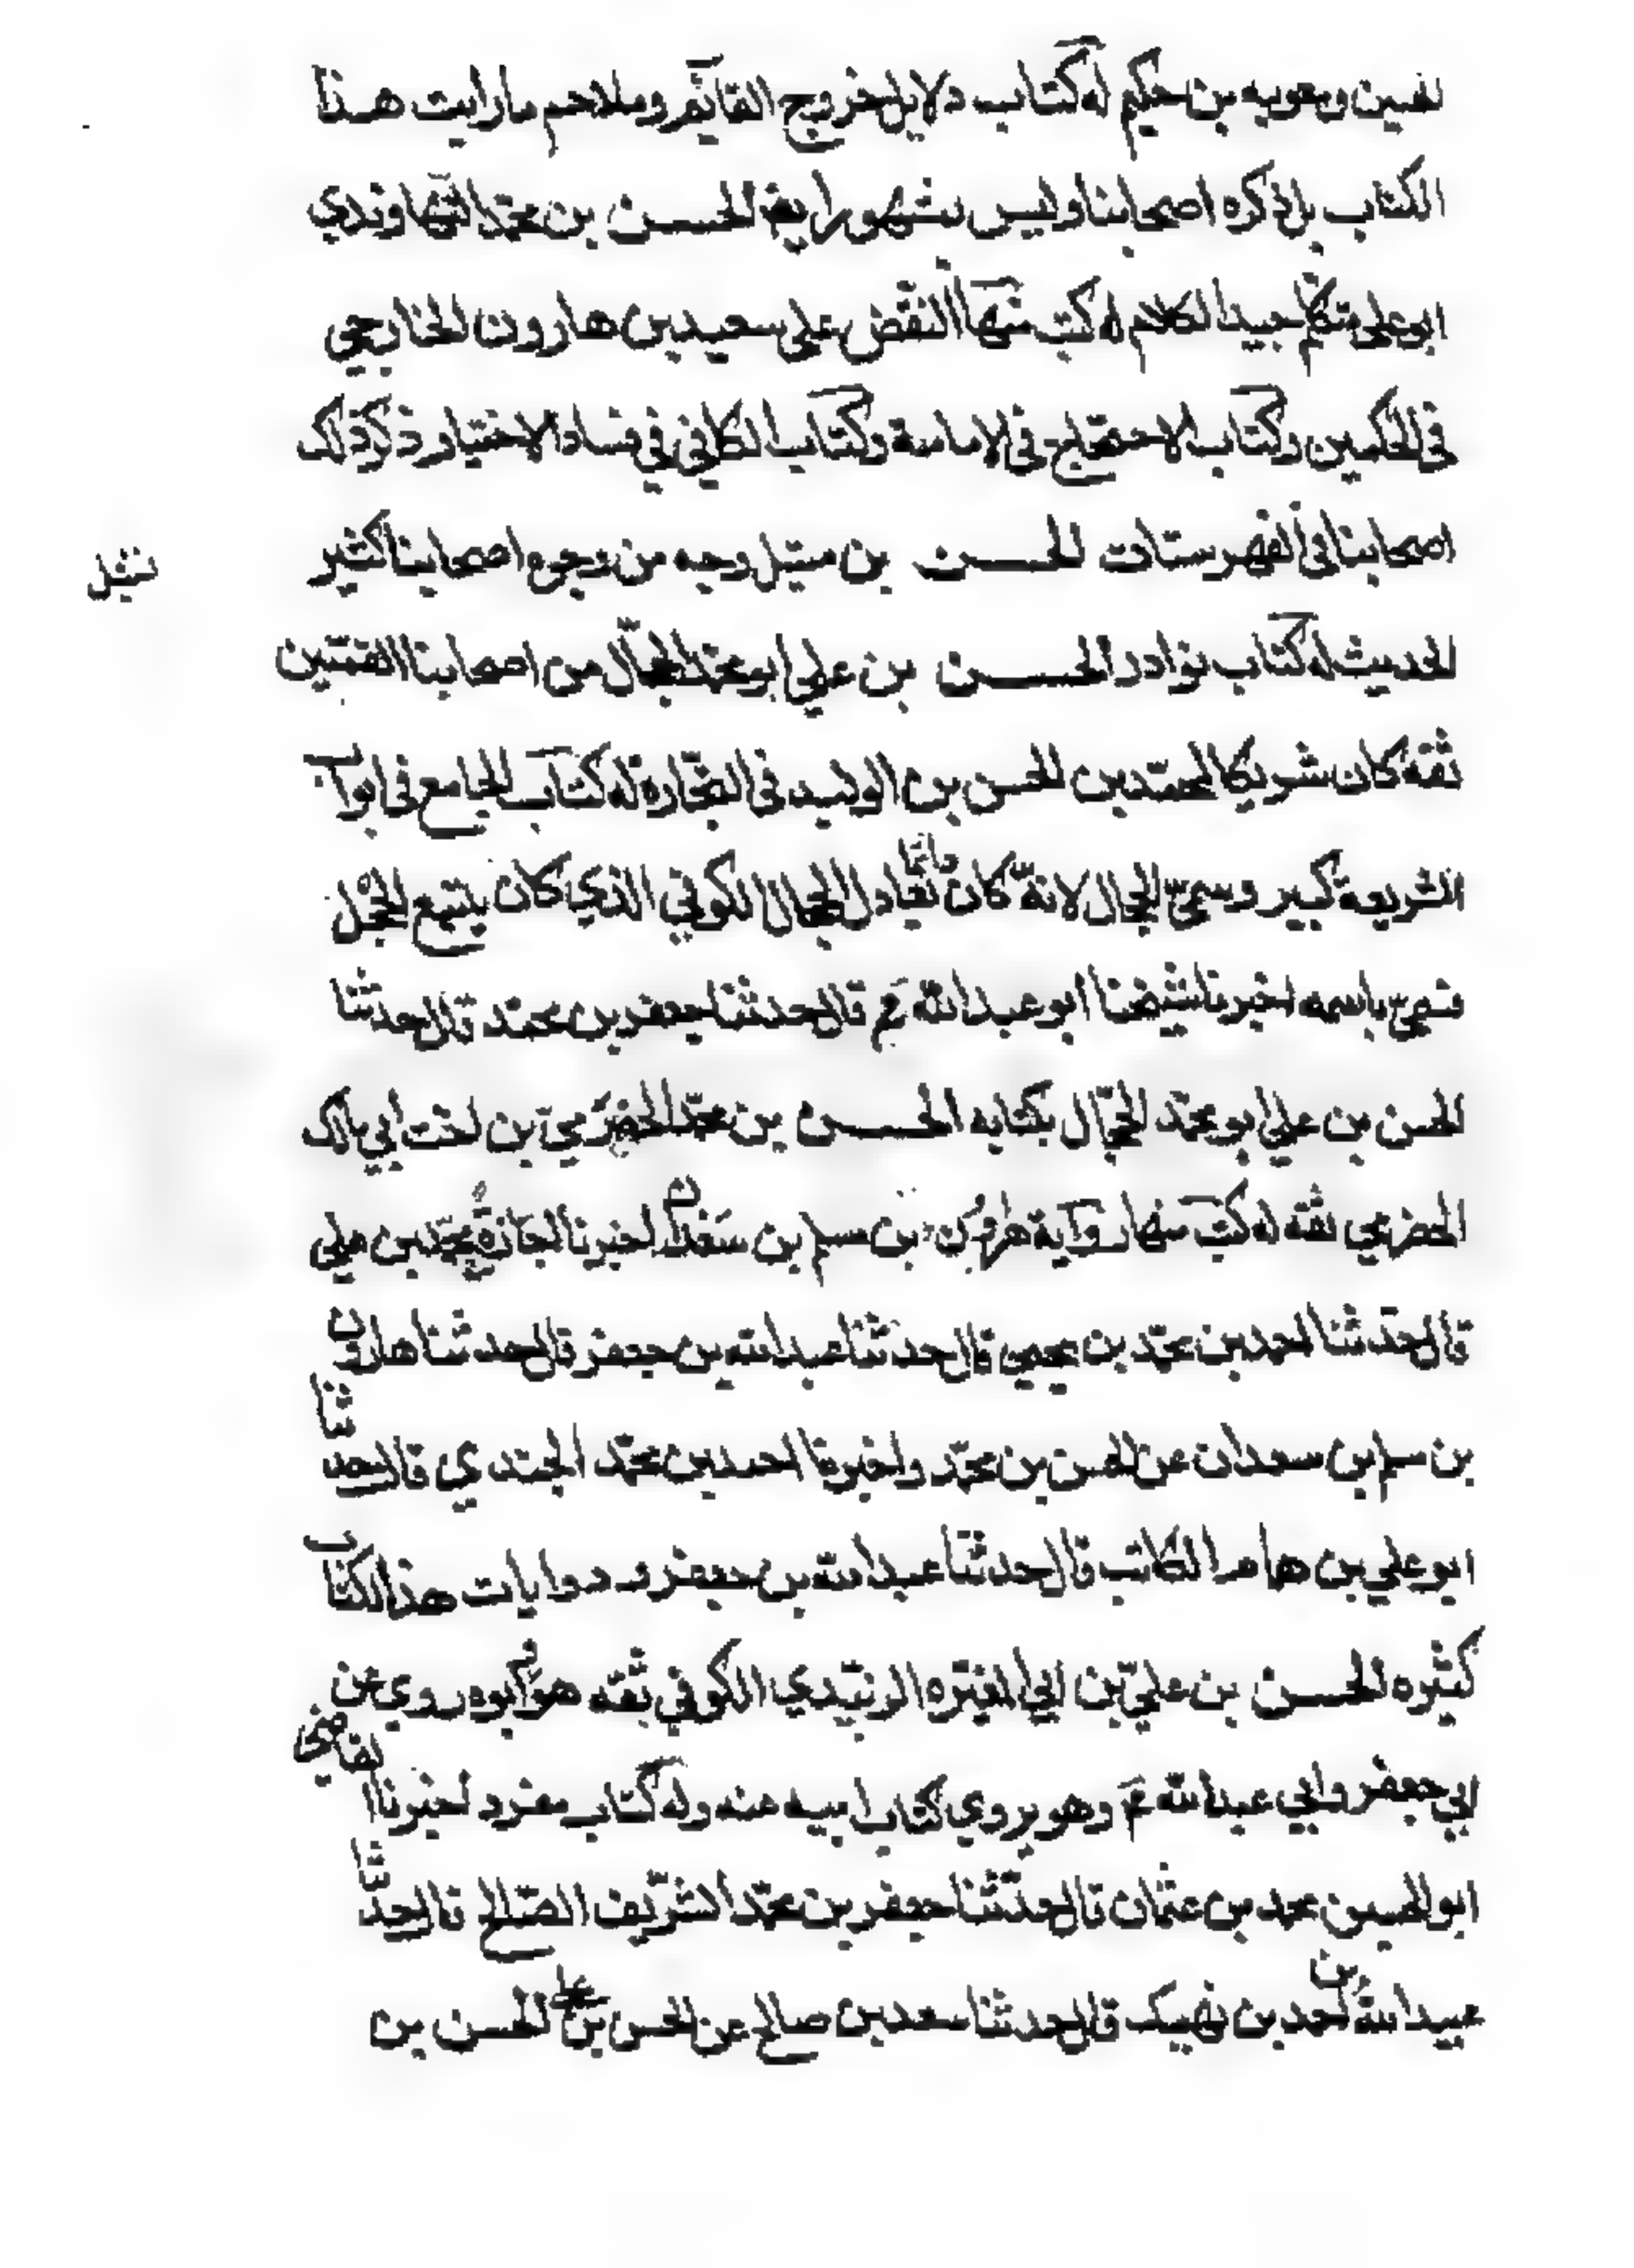 الحسين ومعويه بن حكيم له كتاب دلايل خروج القائم وملاحم مارايت هذا
الكتاب بل ذكره اصحابنا وليس بمشهور ايضا الحسن بن محمد النهاوندي
ابو علي متكلم جيد الكلام له كتب منها النقض على سعيد بن هارون الخارجي
في الحكمين وكتاب الاحتجاج في الامامة وكتاب الكافي في فساد الاختيار ذكر ذلك
اصحابنا في الفهرستات الحسن بن متيل وجه من وجوه اصحابنا كثير
الحديث له كتاب نوادر الحسن بن علي ابو محمد الحجال من اصحابنا القميين
ثقة كان شريكا لمحمد بن الحسن بن الوليد في التجارة له كتاب الجامع في ابواب
الشريعة كبير وسمي الحجال لانه كان دائما يعادل الحجال الكوفي الذي كان يبيع الحجل
فسمي باسمه اخبرنا شيخنا ابو عبد الله قال حدثنا جعفر بن محمد قال حدثنا
الحسن بن علي ابو محمد الحجال بكتابه الحسن بن محمد الحضرمي بن اخت ابي مالك
الحضرمي ثقة له كتب منها رواية هارون بن مسلم بن سعدان اخبرنا اجازة محمد بن علي
قال حدثنا احمد بن محمد بن يحيى قال حدثنا عبد الله بن جعفر قال حدثنا هارون
بن مسلم بن سعدان عن الحسن بن محمد واخبرنا احمد بن محمد الجندي قال حدثنا
ابو علي بن همام الكاتب قال حدثنا عبد الله بن جعفر وروايات هذا الكتاب
كثيره الحسن بن علي بن ابي المغيره الزبيدي الكوفي ثقه هو وابوه روى عن
ابي جعفر وابي عبد الله وهو يروي كتاب ابيه عنه وله كتاب مفرد اخبرنا القاضي
ابو الحسين محمد بن عثمان قال حدثنا جعفر بن محمد الشريف الصالح قال حدثنا
عبيد الله بن احمد بن نهيك قال حدثنا سعد بن صالح عن الحسن بن علي الحسن بن